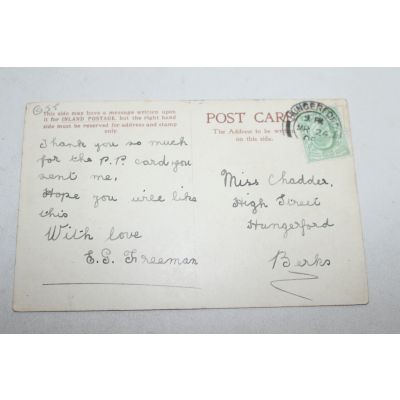 This side may have a message written upon
it for INLAND POSTAGE, but the right hand
side must be reserved for address and stamp
only.
Thank you so much
for the P.P. card you
sent me,
Hope you will like
this
With love
E.G. Freeman
POST CARD
The Address to be
on this side.
HUNGERFORD
MR 24
Miss Chadder,
High Street
Hungerford
Berks